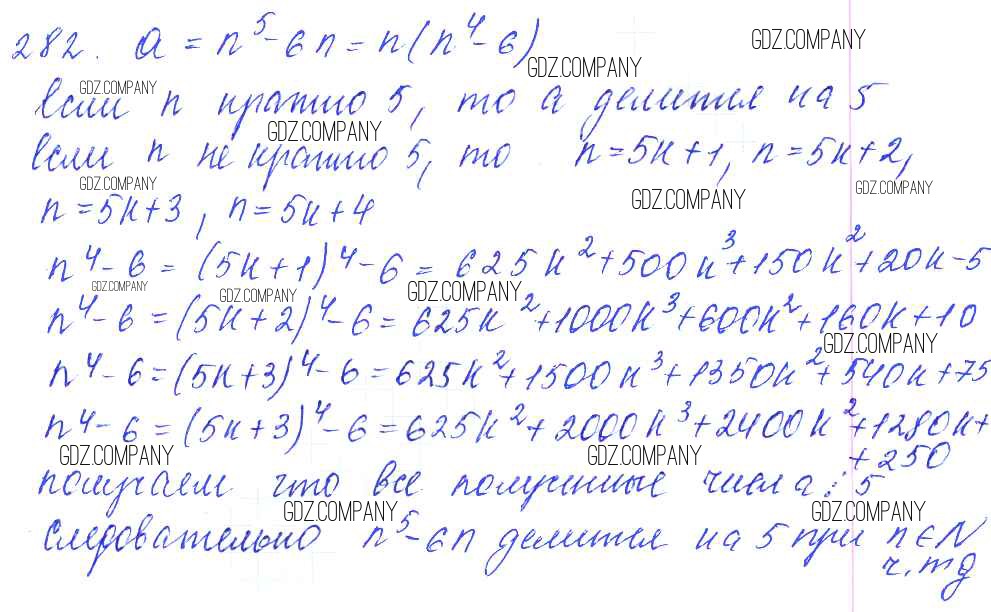 282. a = n⁵ - 6n = n(n⁴ - 6)
GDZ.COMPANY
GDZ.COMPANY
GDZ.COMPANY
если n кратно 5, то a делится на 5
GDZ.COMPANY
если n не кратно 5, то n = 5k + 1, n = 5k + 2,
GDZ.COMPANY
GDZ.COMPANY
GDZ.COMPANY
n = 5k + 3, n = 5k + 4
n⁴ - 6 = (5k + 1)⁴ - 6 = 625k² + 500k³ + 150k² + 20k - 5
GDZ.COMPANY
GDZ.COMPANY
GDZ.COMPANY
n⁴ - 6 = (5k + 2)⁴ - 6 = 625k² + 1000k³ + 600k² + 160k + 10
GDZ.COMPANY
n⁴ - 6 = (5k + 3)⁴ - 6 = 625k² + 1500k³ + 1350k² + 540k + 75
n⁴ - 6 = (5k + 3)⁴ - 6 = 625k² + 2000k³ + 2400k² + 1280k +
+ 250
GDZ.COMPANY
GDZ.COMPANY
получаем что все полученные числа ⋮ 5
GDZ.COMPANY
GDZ.COMPANY
следовательно n⁵ - 6n делится на 5 при n ∈ N
ч.тд